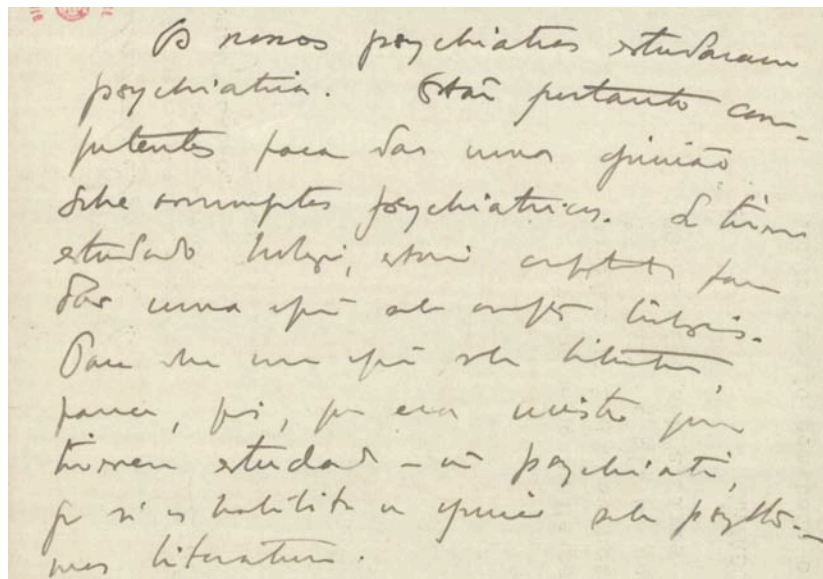 Os nossos psychiatras estudaram
psychiatria. Estão portanto com-
petentes para dar uma opinião
sobre assumptos psychiatricos. Se tivessem
estudado biologia, estariam competentes para
dar uma opinião sobre assumptos
Para dar uma opinião sobre litteratura,
parece, pois, que era mister que
tivessem estudado — não psychiatria,
que só os habilita a opinar sobre
mas litteratura.